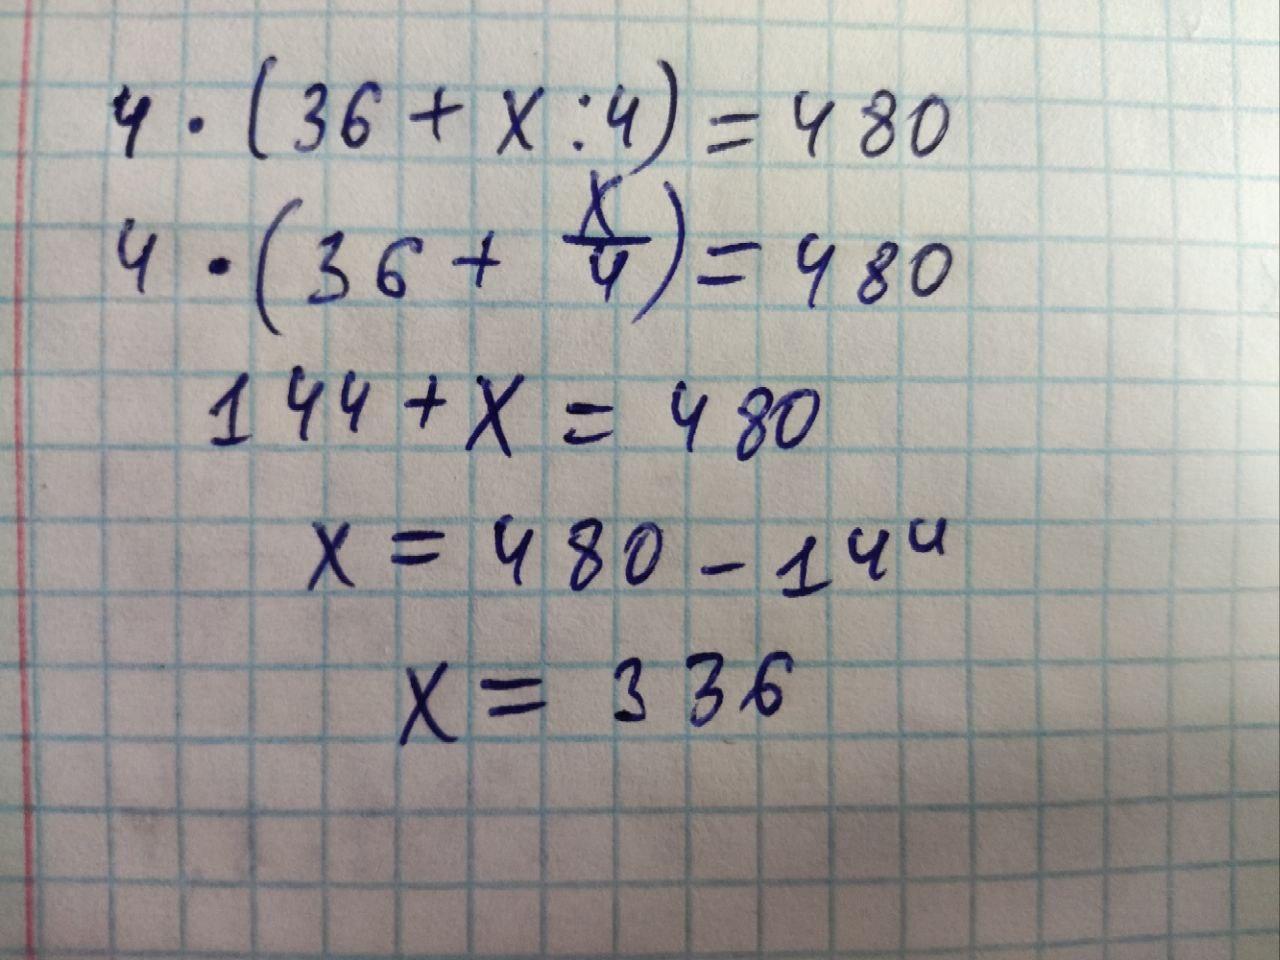 4 · (36 + x : 4) = 480
4 · (36 + x/4) = 480
144 + x = 480
x = 480 - 144
x = 336